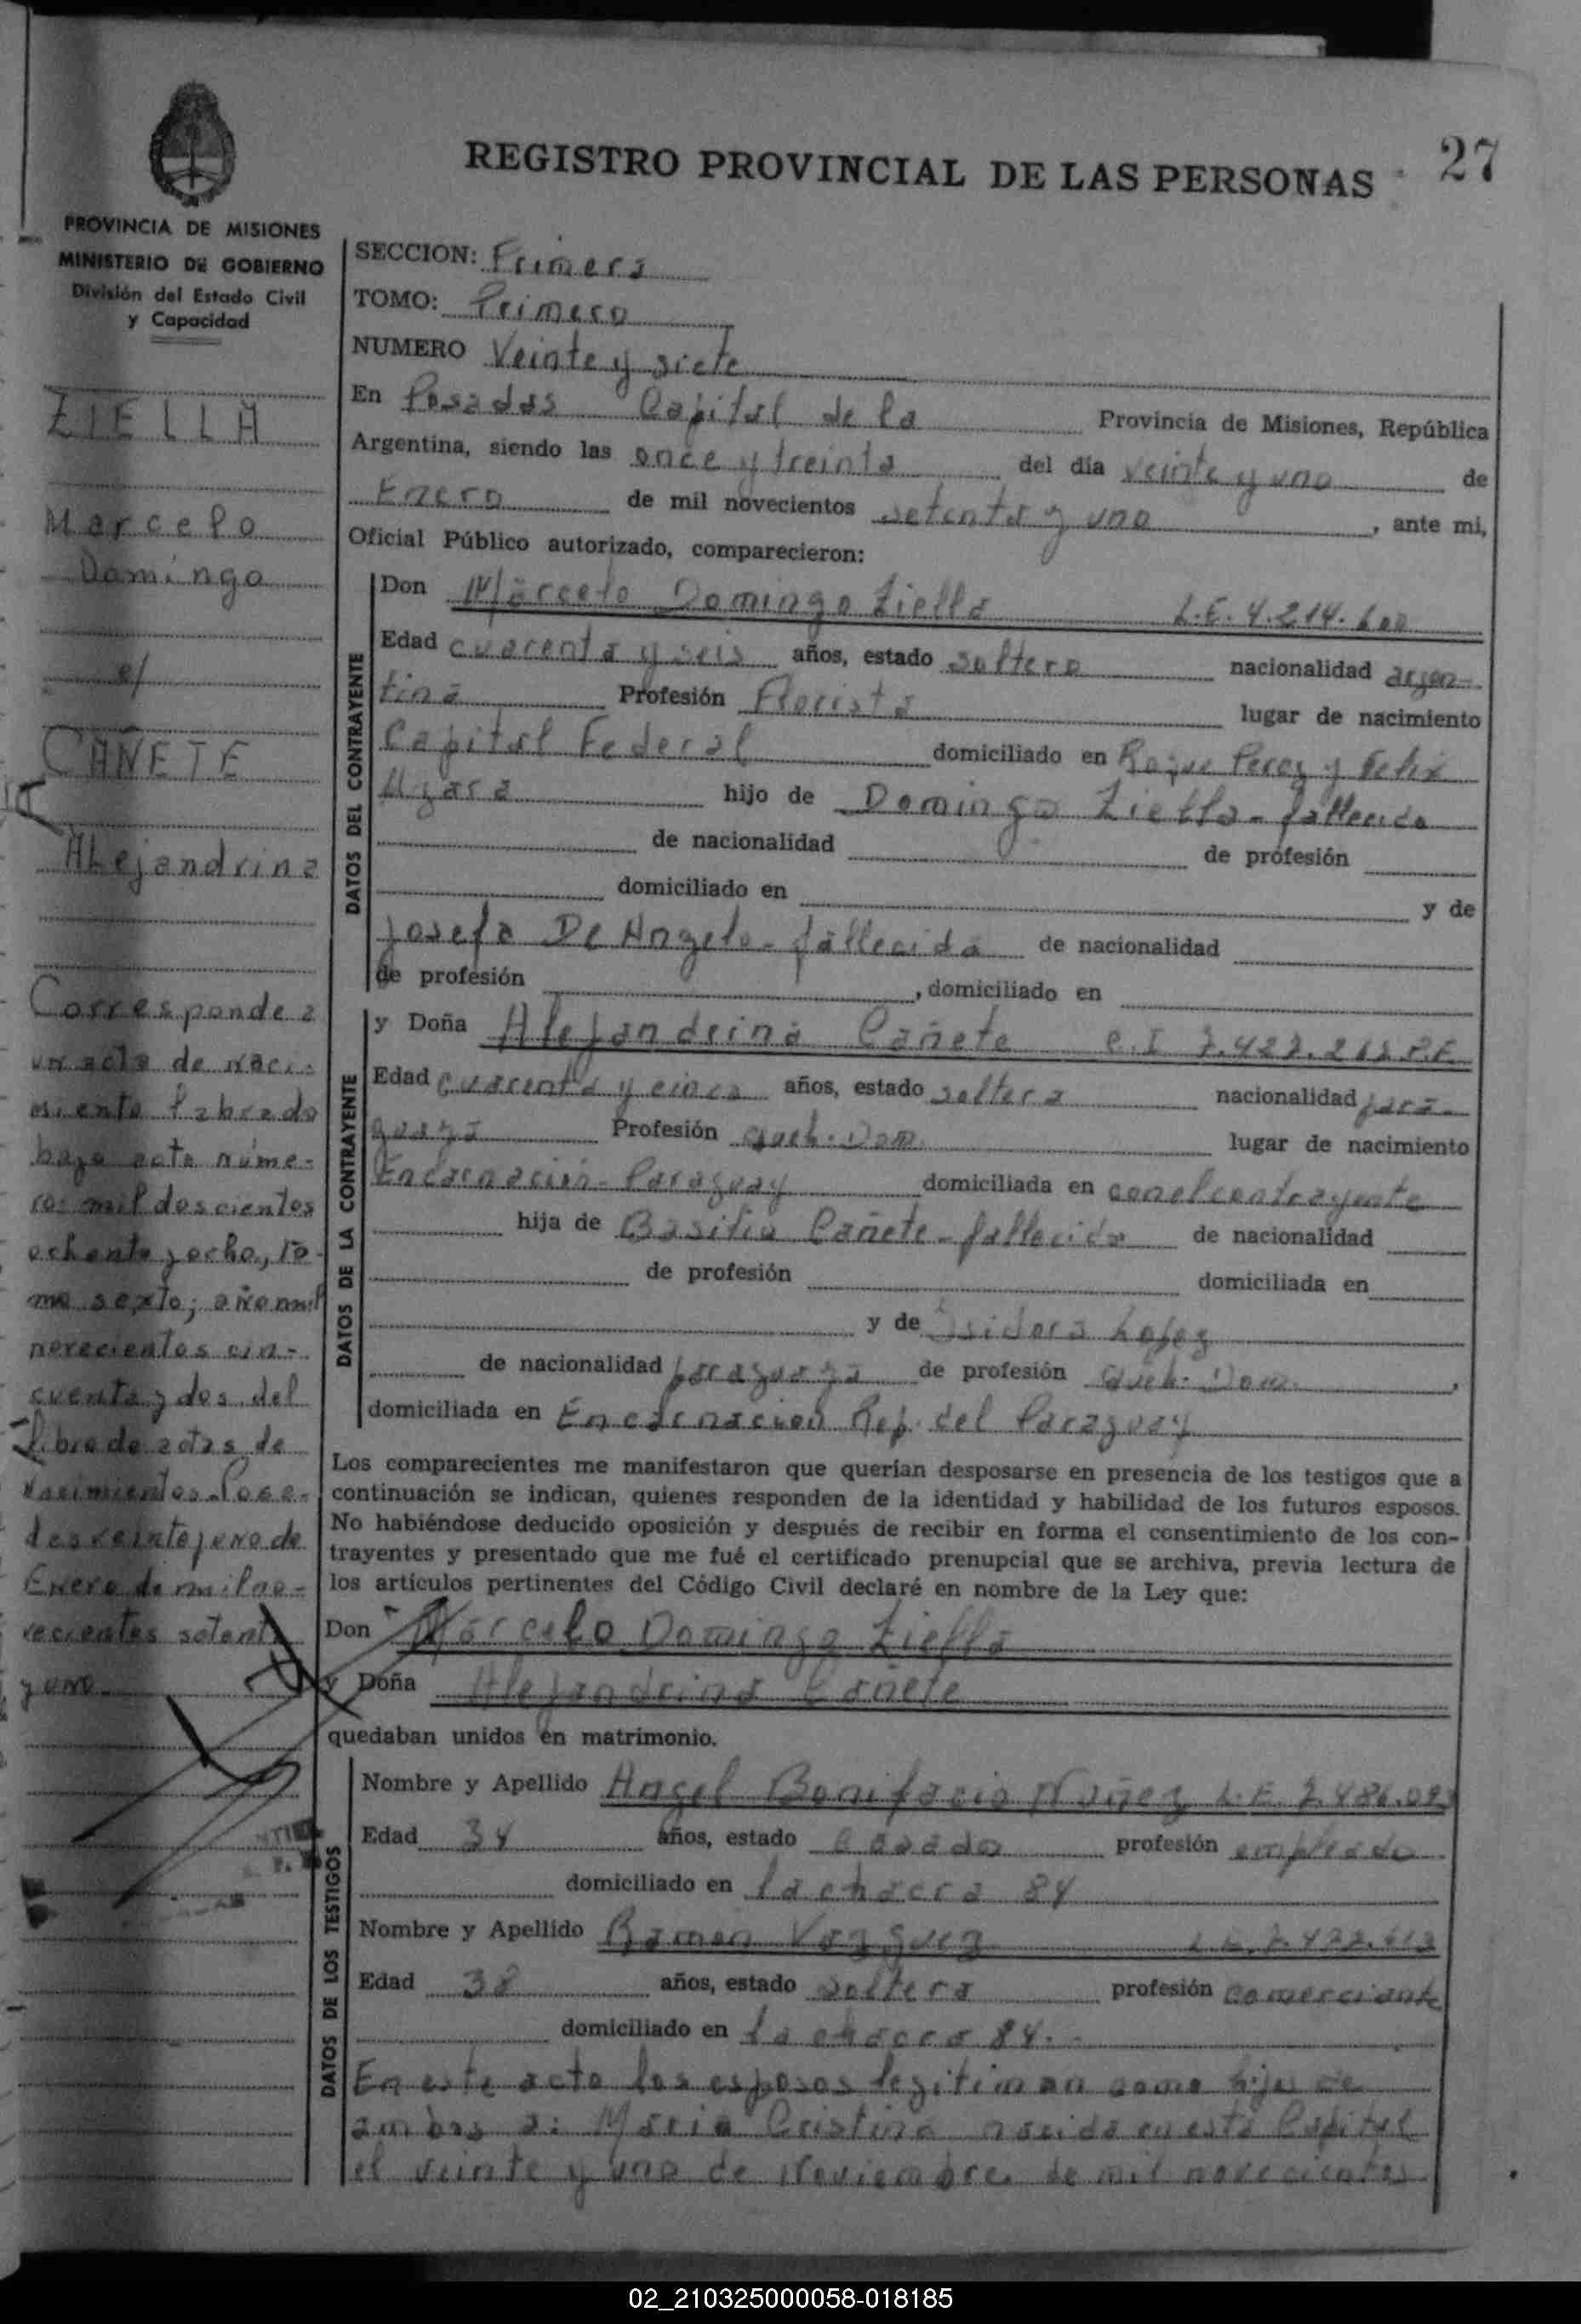 REGISTRO PROVINCIAL DE LAS PERSONAS
27
PROVINCIA DE MISIONES
MINISTERIO DE GOBIERNO
División del Estado Civil
y Capacidad
ZIELLA
Marcelo
Domingo
c/
CAÑETE
Alejandrina
Corresponde a
un acta de naci-
miento labrado
bajo acta núme-
ro: mil doscientos
ochenta y ocho, to-
mo sexto; año mil
novecientos cin-
cuenta y dos del
libro de actas de
Nacimientos. Posa-
das veinte y uno de
Enero de mil no-
vecientos setenta
y uno
SECCION: Primera
TOMO: Primero
NUMERO Veinte y siete
En Posadas Capital de la Provincia de Misiones, República
Argentina, siendo las once y treinta del día veinte y uno de
Enero de mil novecientos setenta y uno, ante mi,
Oficial Público autorizado, comparecieron:
DATOS DEL CONTRAYENTE
Don Marcelo Domingo Ziella L.E. 4.214.600
Edad cuarenta y seis años, estado soltero nacionalidad argen-
tina Profesión Florista lugar de nacimiento
Capital Federal domiciliado en Roque Perez y Felix
Azara hijo de Domingo Ziella - fallecido
de nacionalidad de profesión
domiciliado en y de
Josefa De Angelo - fallecida de nacionalidad
de profesión , domiciliado en
DATOS DE LA CONTRAYENTE
y Doña Alejandrina Cañete C.I
Edad cuarenta y cinco años, estado soltera nacionalidad para-
guaya Profesión Queh. Dom. lugar de nacimiento
Encarnación - Paraguay domiciliada en con el contrayente
hija de Basilio Cañete - fallecido de nacionalidad
de profesión domiciliada en
y de Isidora Lopez
de nacionalidad paraguaya de profesión Queh. Dom.,
domiciliada en Encarnacion Rep. del Paraguay
Los comparecientes me manifestaron que querían desposarse en presencia de los testigos que a
continuación se indican, quienes responden de la identidad y habilidad de los futuros esposos.
No habiéndose deducido oposición y después de recibir en forma el consentimiento de los con-
trayentes y presentado que me fué el certificado prenupcial que se archiva, previa lectura de
los artículos pertinentes del Código Civil declaré en nombre de la Ley que:
Don Marcelo Domingo Ziella
y Doña Alejandrina Cañete
quedaban unidos en matrimonio.
DATOS DE LOS TESTIGOS
Nombre y Apellido Angel Bonifacio Nuñez L.E.
Edad 34 años, estado casado profesión empleado
domiciliado en la chacra 84
Nombre y Apellido Ramon Vazquez
Edad 38 años, estado soltero profesión comerciante
domiciliado en la chacra 84.
En este acto los esposos legitiman como hija de
ambos a: Maria Cristina nacida en esta Capital
el veinte y uno de Noviembre de mil novecientos
02_210325000058-018185